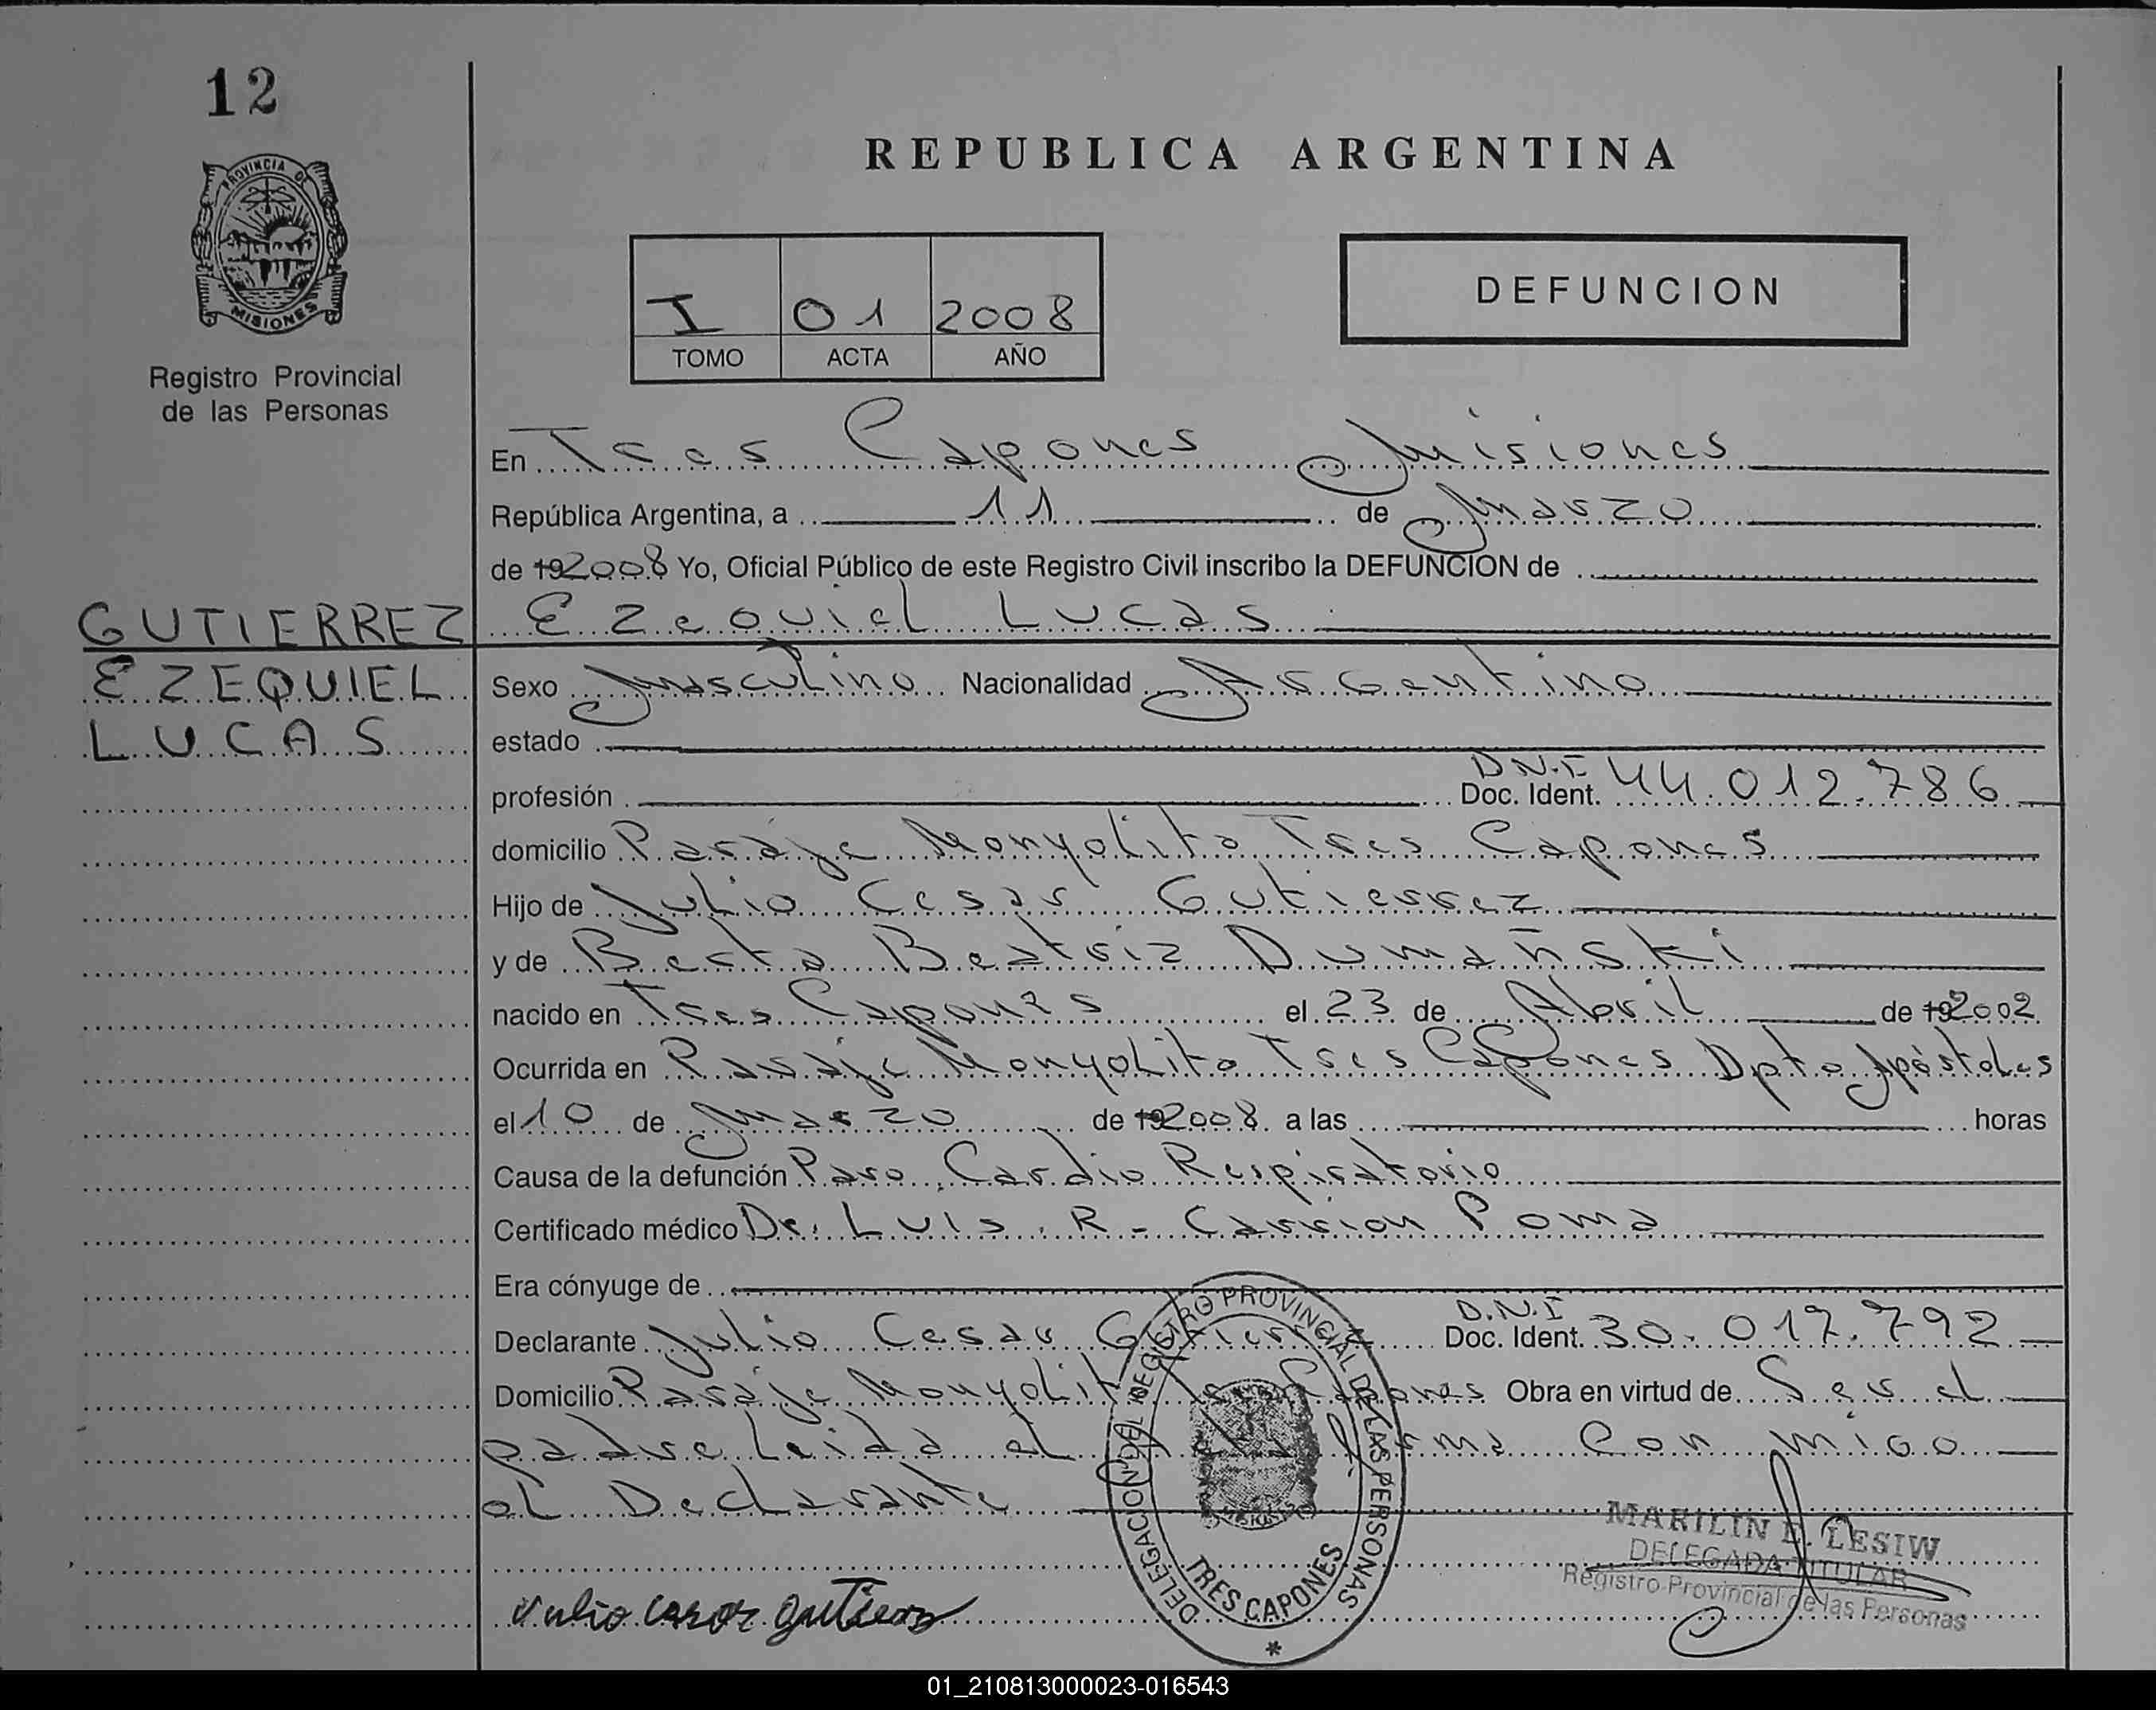 12
PROVINCIA DE
MISIONES
Registro Provincial
de las Personas
REPUBLICA ARGENTINA
I 01 2008
TOMO ACTA AÑO
DEFUNCION
En Tres Capones Misiones
República Argentina, a 11 de Marzo
de 192008 Yo, Oficial Público de este Registro Civil inscribo la DEFUNCION de
GUTIERREZ
EZEQUIEL
LUCAS
Ezequiel Lucas
Sexo Masculino Nacionalidad Argentino
estado
profesión D.N.I Doc. Ident. 44.012.786
domicilio Paraje Monyolito Tres Capones
Hijo de Julio Cesar Gutierrez
y de Berta Beatriz Dumañski
nacido en Tres Capones el 23 de Abril de 192002
Ocurrida en Paraje Monyolito Tres Capones Dpto Apóstoles
el 10 de Marzo de 192008 a las horas
Causa de la defunción Paro Cardio Respiratorio
Certificado médico Dr. Luis R. Carrion Poma
Era cónyuge de
Declarante Julio Cesar Gutierrez D.N.I Doc. Ident. 30.017.792
Domicilio Paraje Monyolito Capones Obra en virtud de Ser el
padre Leida el firma Con migo
el Declarante
DELEGACION DEL REGISTRO PROVINCIAL DE LAS PERSONAS
TRES CAPONES
MARILIN E. LESIW
DELEGADA TITULAR
Registro Provincial de las Personas
Julio Cesar Gutierrez
01_210813000023-016543